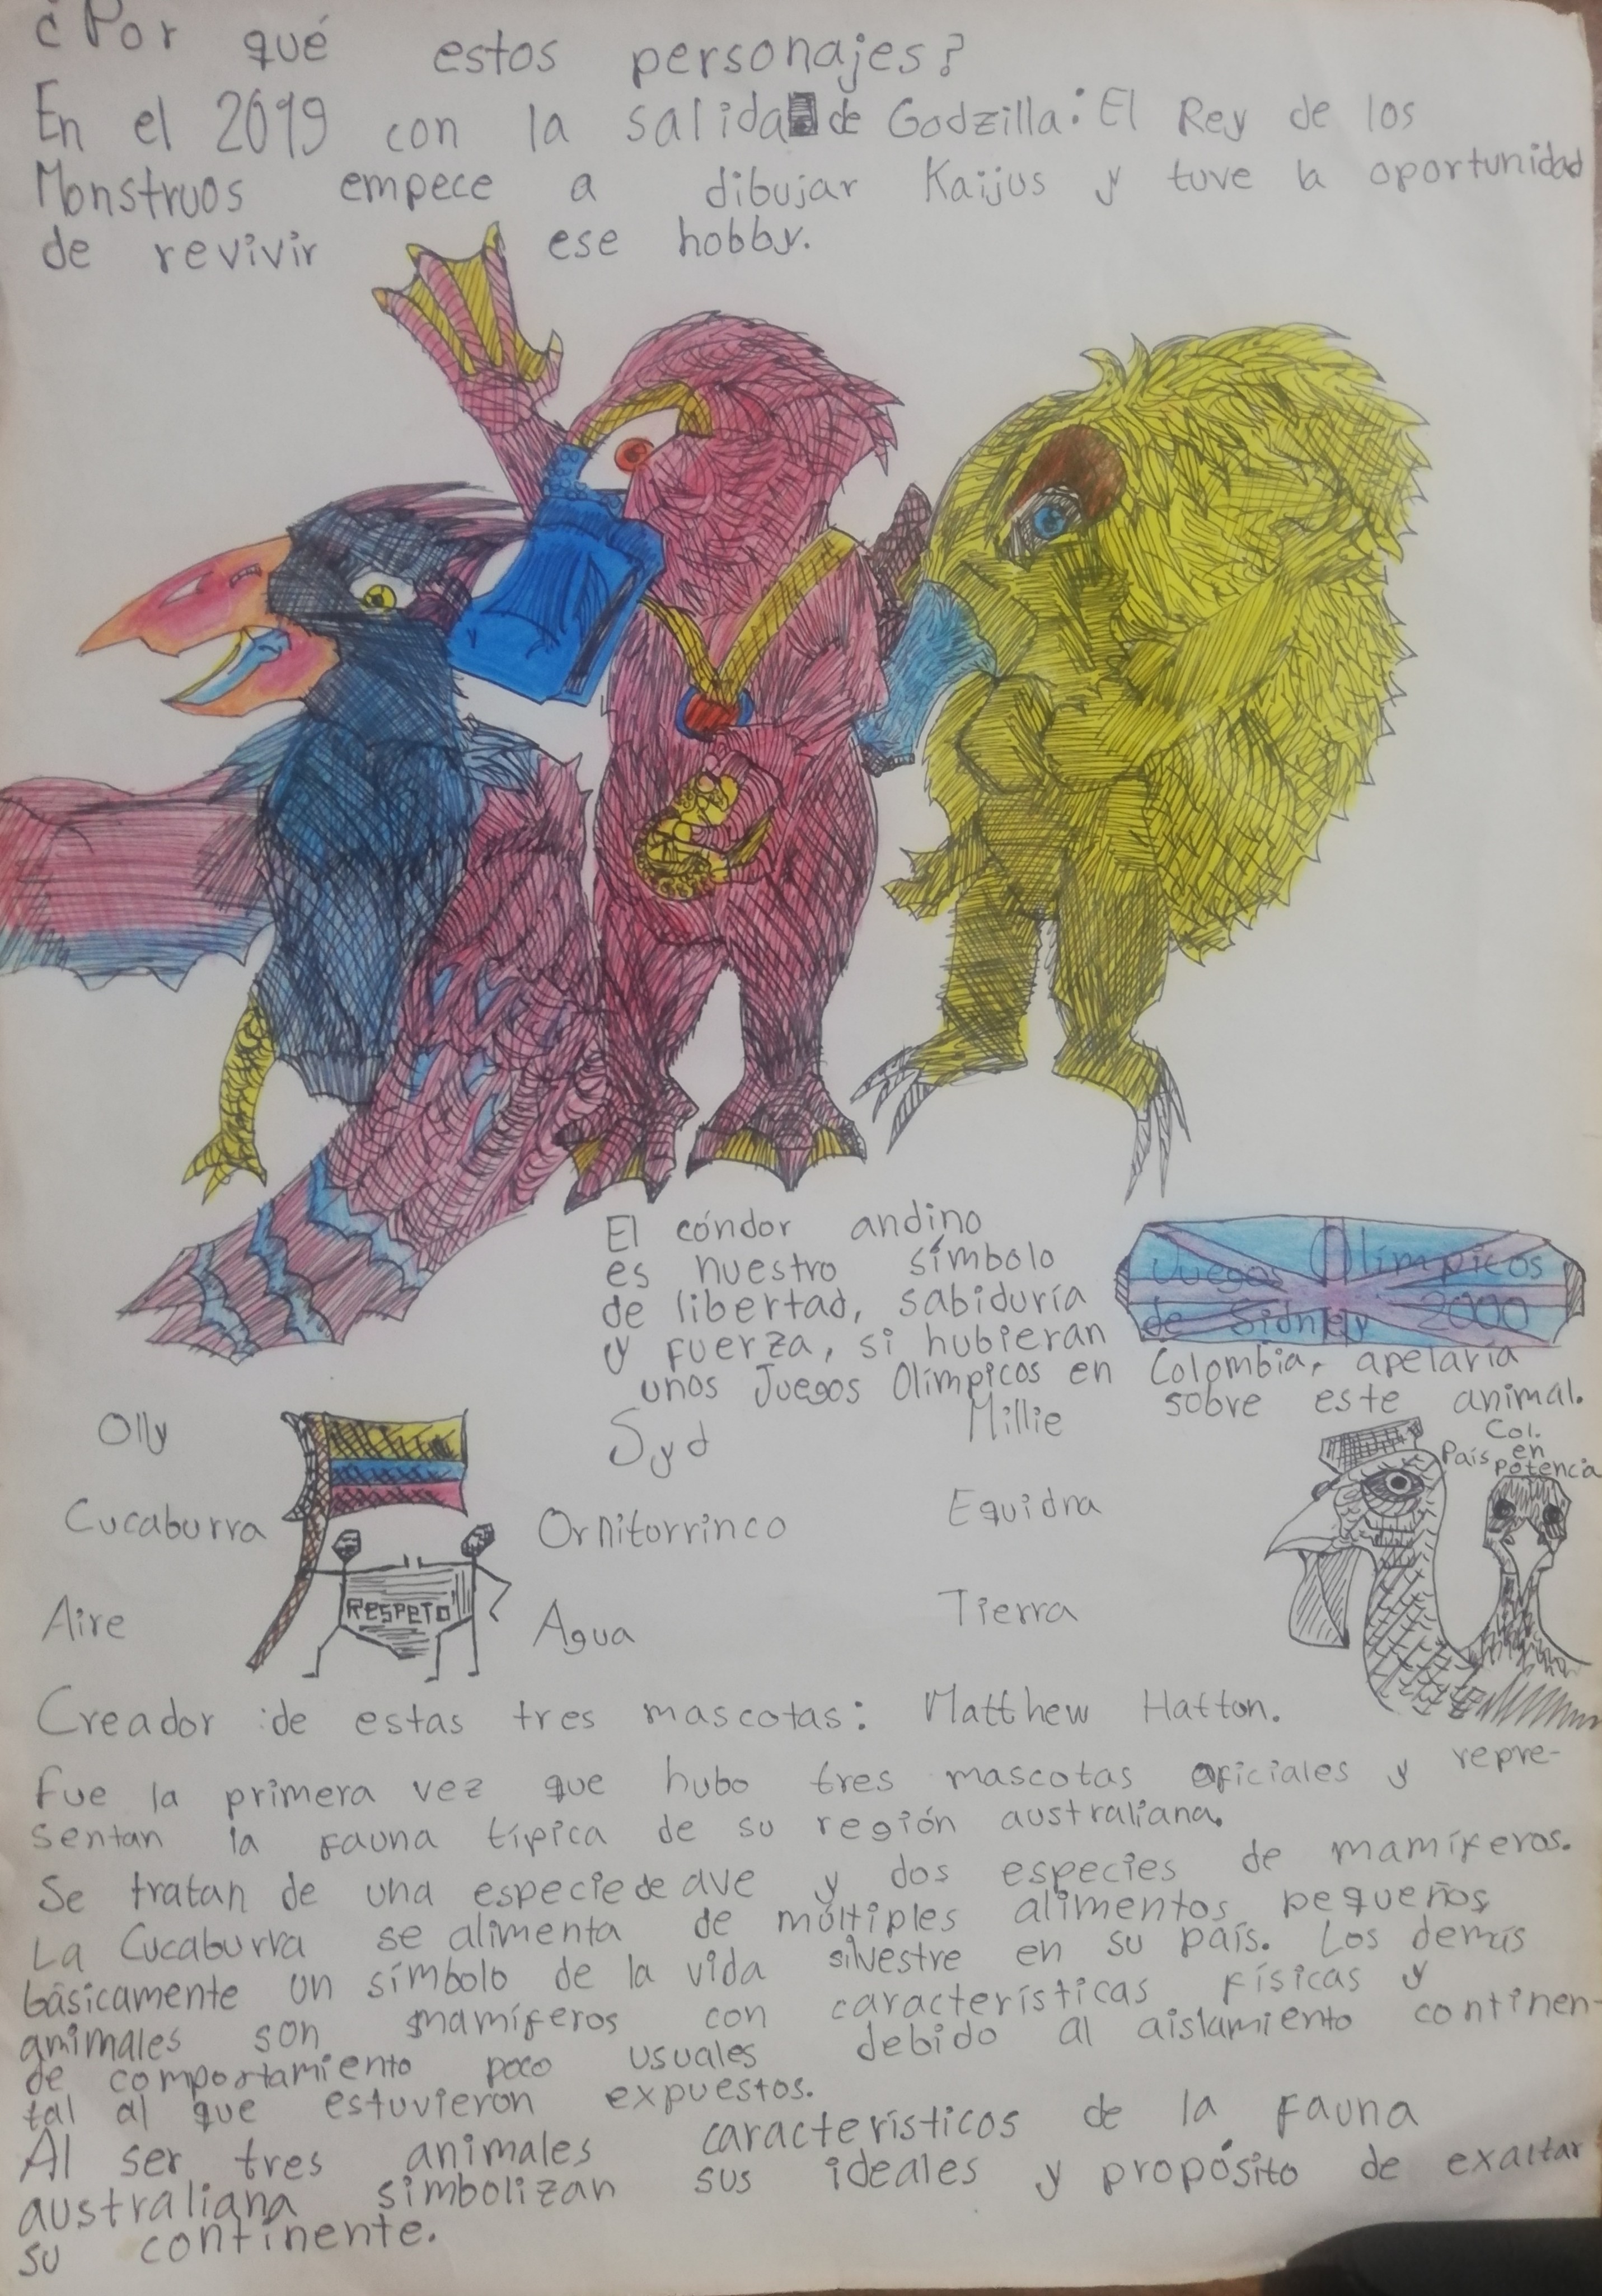 ¿Por qué estos personajes?
En el 2019 con la salida de Godzilla: El Rey de los
Monstruos empece a dibujar Kaijus y tuve la oportunidad
de revivir ese hobby.
El cóndor andino
es nuestro símbolo
de libertad, sabiduría
y fuerza, si hubieran
unos Juegos Olímpicos en Colombia, apelaría
sobre este animal.
Juegos Olímpicos
de Sidney 2000
Olly
Syd
Millie
Col.
País en
potencia
Cucaburra
Ornitorrinco
Equidna
RESPETO
Aire
Agua
Tierra
Creador de estas tres mascotas: Matthew Hatton.
Fue la primera vez que hubo tres mascotas oficiales y repre-
sentan la fauna típica de su región australiana.
Se tratan de una especie de ave y dos especies de mamíferos.
La Cucaburra se alimenta de múltiples alimentos pequeños
básicamente un símbolo de la vida silvestre en su país. Los demás
animales son mamíferos con características físicas y
de comportamiento poco usuales debido al aislamiento continen-
tal al que estuvieron expuestos.
Al ser tres animales característicos de la fauna
australiana simbolizan sus ideales y propósito de exaltar
su continente.